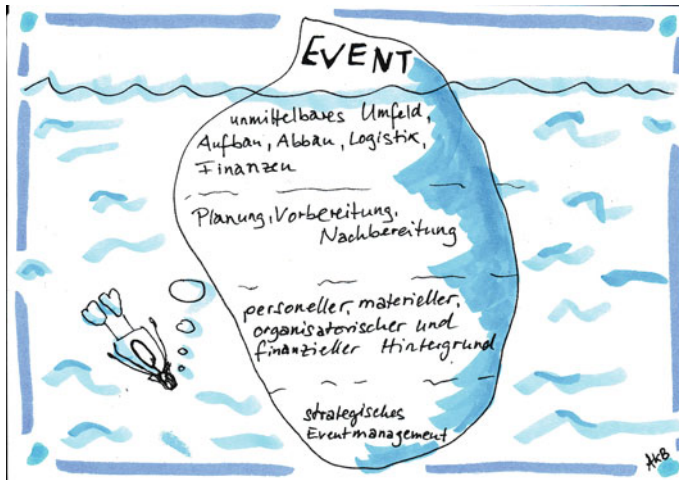 EVENT
unmittelbares Umfeld,
Aufbau, Abbau, Logistik,
Finanzen
Planung, Vorbereitung,
Nachbereitung
personeller, materieller,
organisatorischer und
finanzieller Hintergrund
strategisches
Eventmanagement
AKB